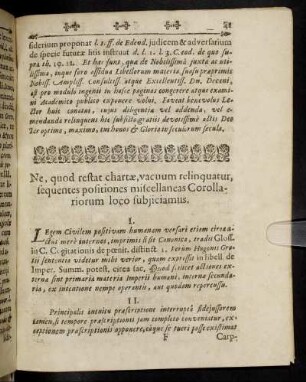 siderium proponat l. 1. ff. de Edend. judicem & adversarium
de specie futuræ litis instruat d. l. 1. l. 3. C. eod. de quo su-
pra th. 19. 21. Et hæc sunt, quæ de Nobilissima juxta ac uti-
lissima, inque foro assidua Libellorum materia, Jussu præprimis
Nobiliss. Ampliss. Consultissf. atque Excellentiss. Dn. Decani,
& pro modulo ingenii in hasce paginas congerere atque exami-
ni Academico publico exponere volui, Juvet benevolus Le-
ctor huic conatui, inque disquirat vel addenda, vel e-
mendanda relinquens his subsistogratiis devotissime actis Deo
Ter optimo, maximo, tui honos & Gloria in seculorum secula,
Ne, quod restat chartæ, vacuum relinquatur,
sequentes positiones miscellaneas Corolla-
riorum loco subjiciamus.
I.
LEgem Civilem positivam humanam versari etiam circa a-
ctus mere internos, imprimis si sit Connexa, tradit Gloss.
in C. Cogitationis de pœnit. distinct. 1. Verùm Hugonis Gro-
tii sententia videtur mihi verior, quam expressit in libell. de
Imper. Summ. potest. circa sac. Quod scilicet actiones ex-
ternæ sint primaria materia Imperii humani, internæ secunda-
ria, ex intentione nempe operantis, aut quodam repercussu.
II.
Principalis intuitu præscriptione interrupti fidejussorem
tamen, si tempore præscriptionis jam completo conveniatur, ex-
ceptionem præscriptionis opponere, eaque se tueri posse existimat
F Carp-